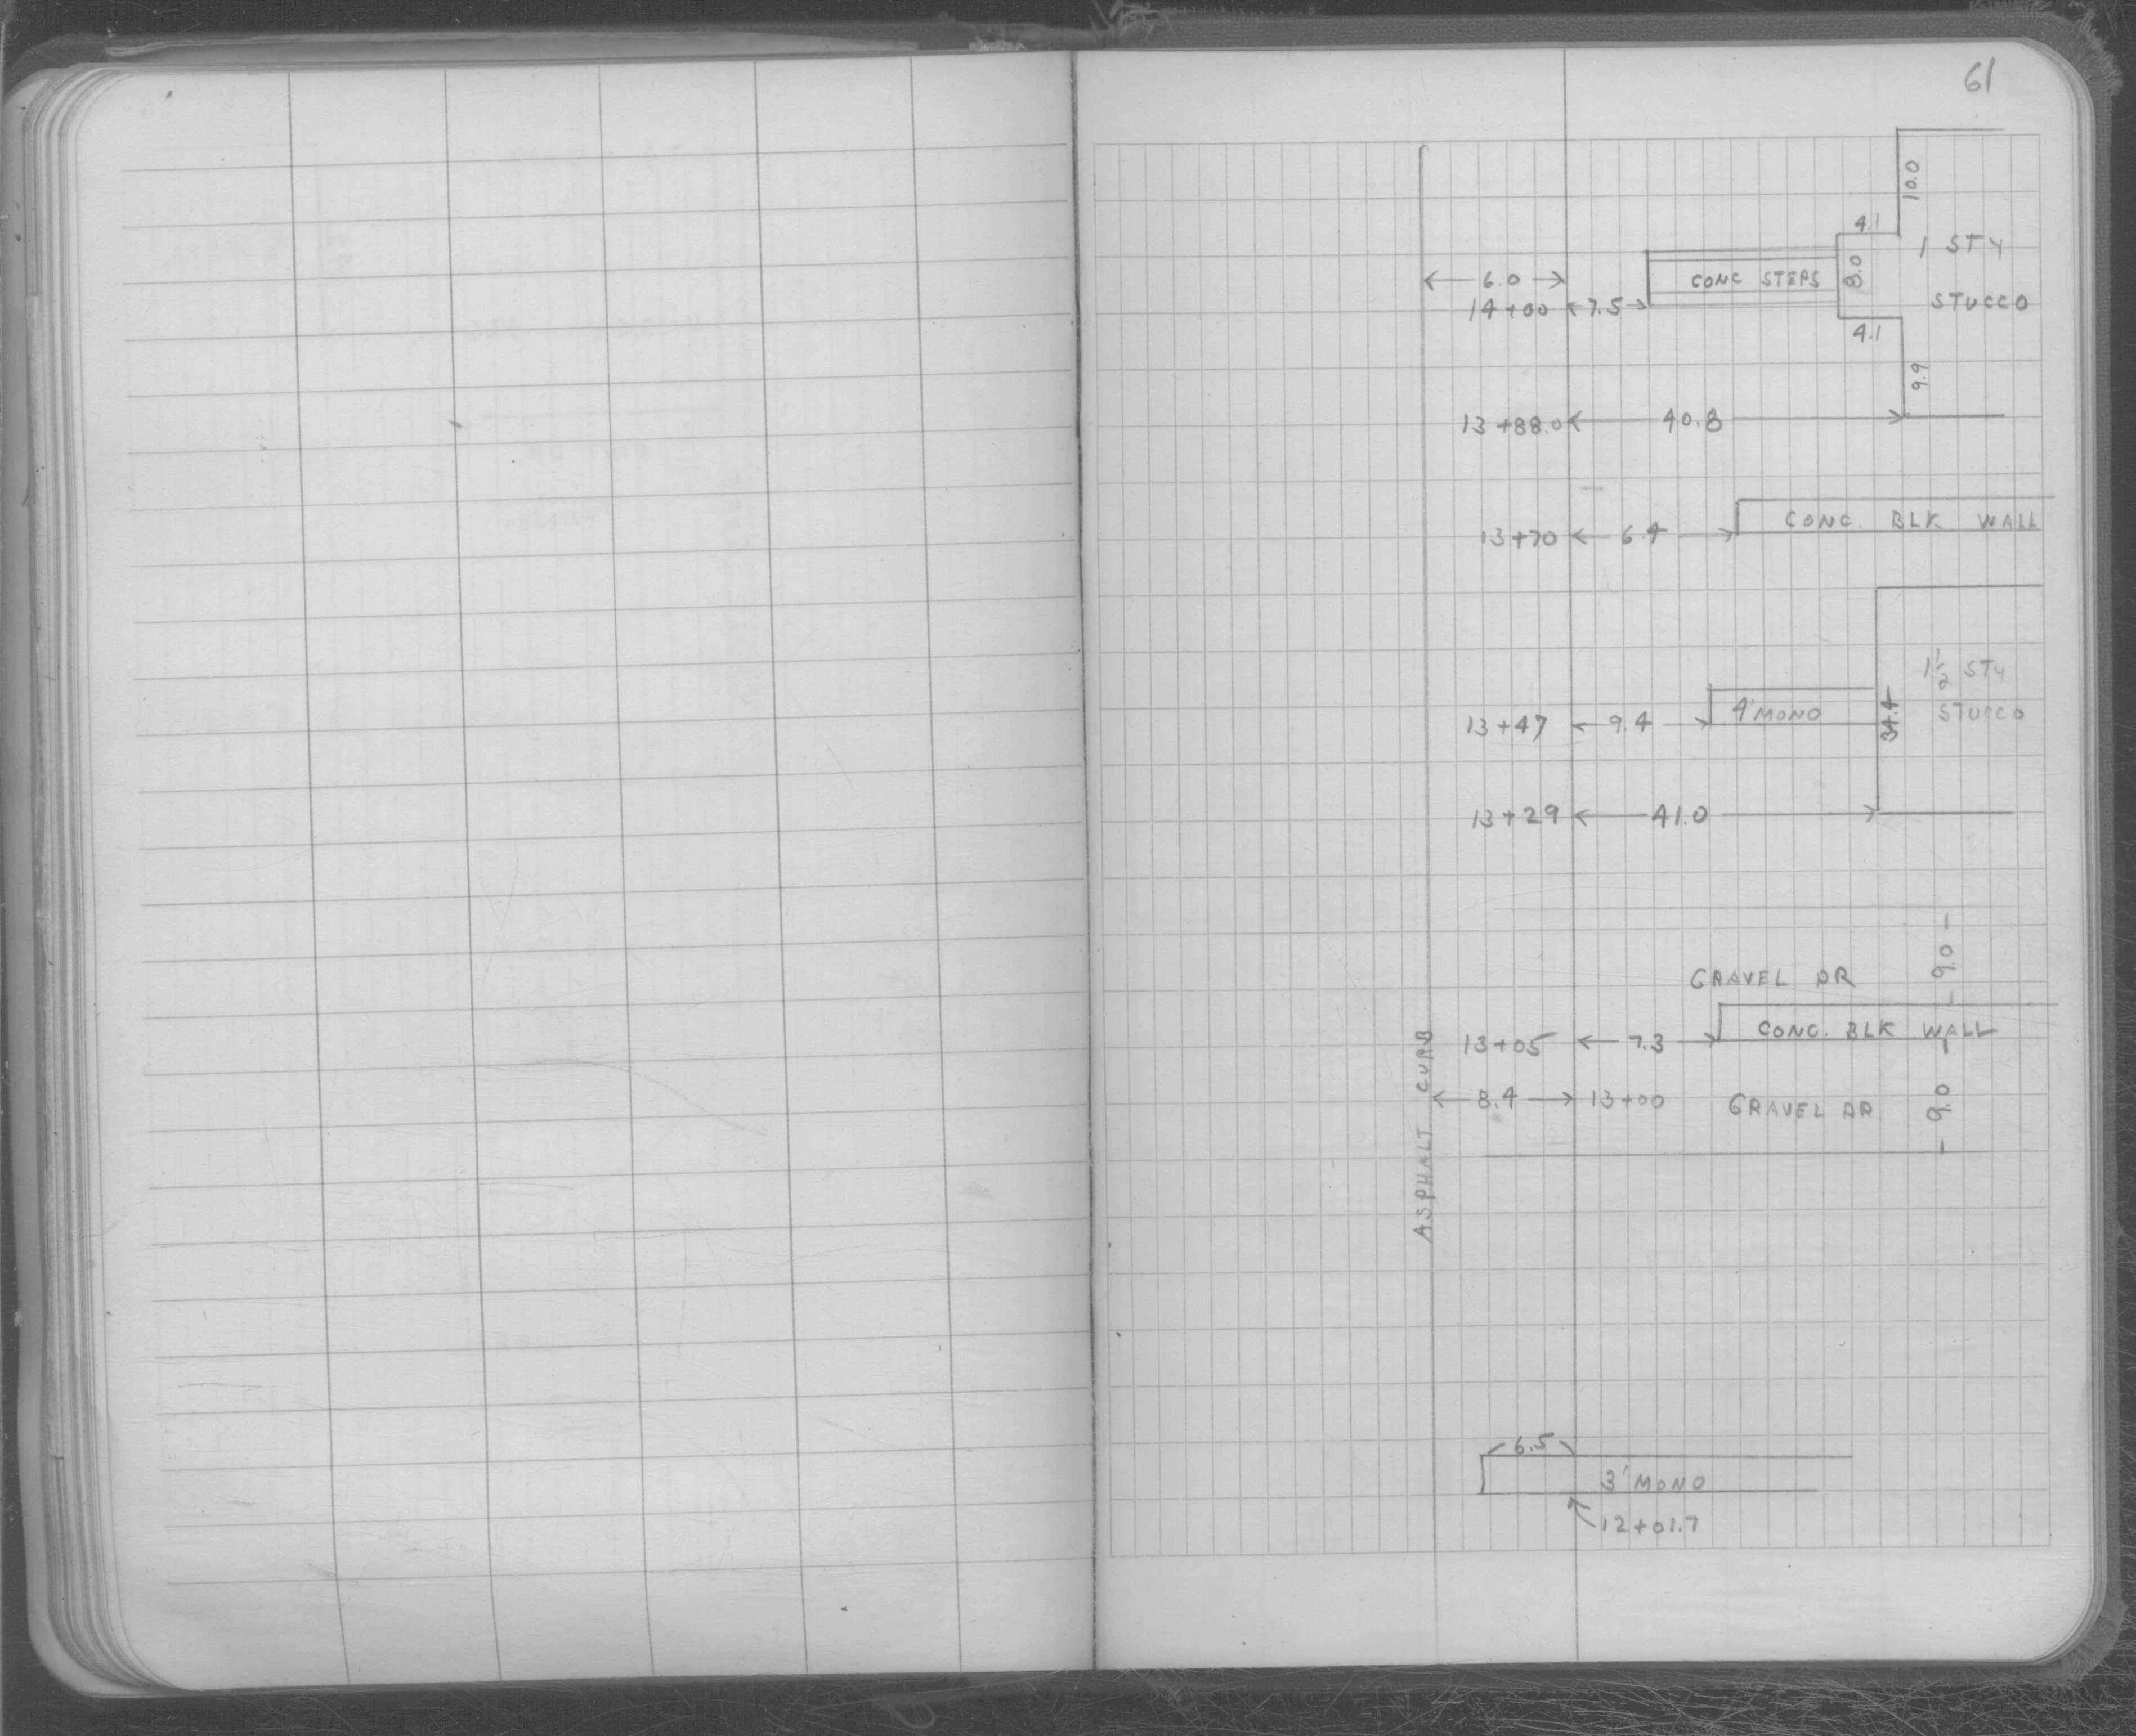 61
10.0
4.1
1 STY
← 6.0 →
CONC STEPS
8.0
STUCCO
14+00 ← 7.5 →
4.1
9.9
13+88.0 ← 40.8 →
CONC. BLK WALL
13+70 ← 6.4 →
1½ STY
4' MONO
STUCCO
34.4
13+47 ← 9.4 →
13+29 ← 41.0 →
- 9.0 -
GRAVEL DR
CONC. BLK WALL
13+05 ← 7.3 →
ASPHALT CURB
← 8.4 → 13+00
GRAVEL DR
- 9.0 -
6.5
3' MONO
12+01.7